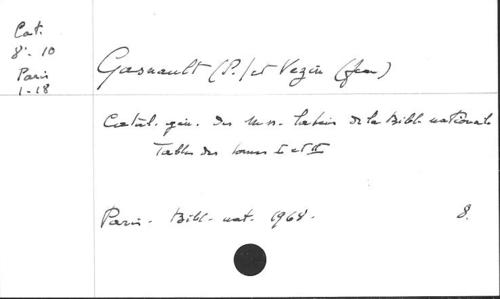 Cat.
8°- 10
Paris
1-18
Gasnault (P.) et Vezin (Jean)
Catal. gén. des mss. latins de la Bibl. nationale
Tables des tomes I et II
Paris - Bibl. nat. 1968. 8.